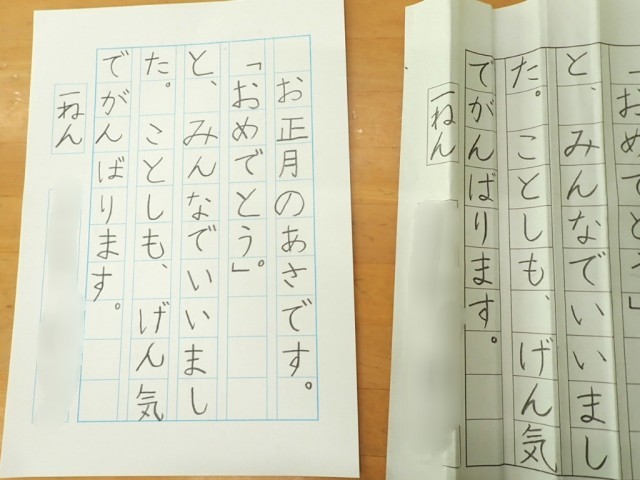 お正月のあさです。
「おめでとう」。
と、みんなでいいまし
た。ことしも、げん気
でがんばります。
一ねん
「おめでとう」
と、みんなでいいまし
た。ことしも、げん気
でがんばります。
一ねん